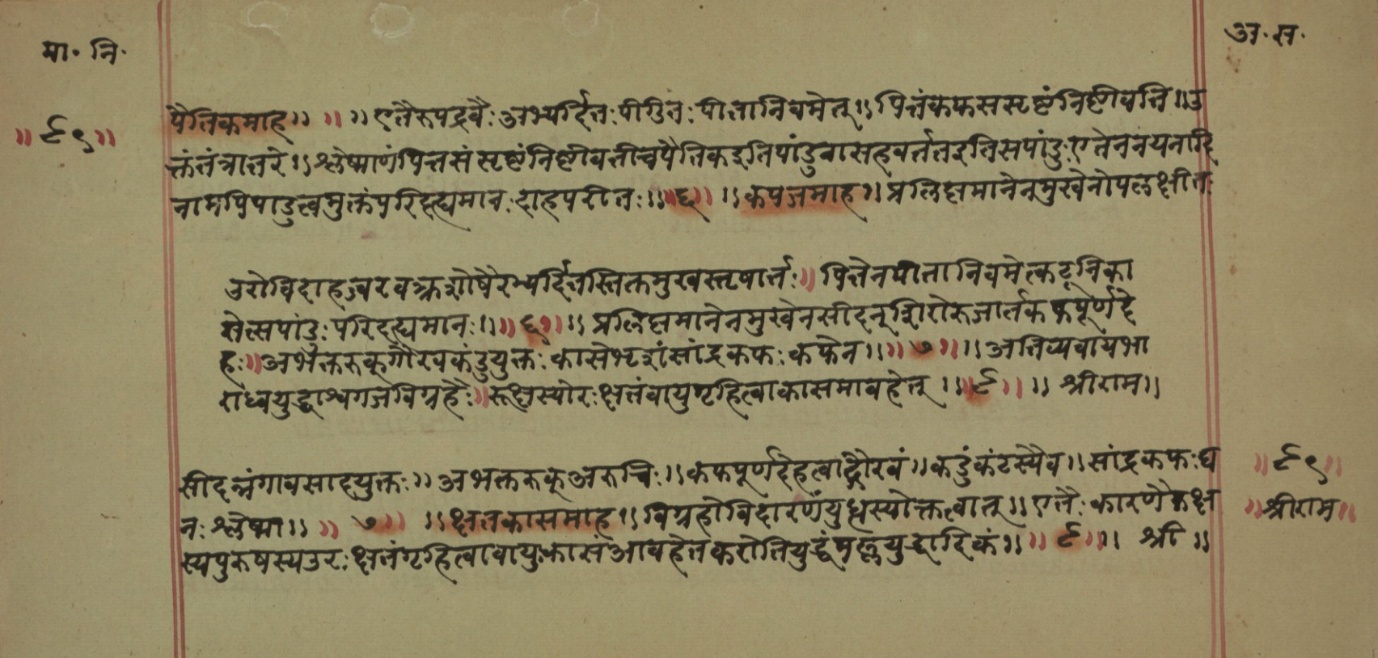 मा. नि.
अ. स.
पैत्तिकमाह॥ ॥ ॥एतैरुपद्रवैः अभ्यर्दितः पीडितः पीतानिवमेत्॥पित्तंकफससृष्टंनिष्टीवति॥उ
॥८९॥
क्तंतंत्रान्तरे॥श्लेष्माणंपित्तसंसृष्टंनिष्टीवतीचपैतिकइतिपांडुनासहवर्ततइतिसपांडुःएतेननयनादि
नामपिपांडुत्वमुक्तंपरिदह्यमानःदाहपरीतः॥ ॥६॥ ॥कफजमाह॥प्रलिप्तमानेनमुखेनोपलक्षीतः
उरोविदाहज्वरवक्रशोषैरभ्यर्दितस्तिक्तमुखस्तृषार्तः॥पित्तेनपीतानिवमेत्कटूनिका
सेत्सपांडुःपरिदह्यमानः॥॥६॥ ॥प्रलिप्तमानेनमुखेनसीदन्शिरोरुजार्तकफपूर्णदे
हः॥अभक्तरुक्गौरवकंडुयुक्तःकासेभृशंसांद्रकफःकफेन॥॥७॥ ॥अतिव्यवायंभा
राध्वयुद्धाश्वगजविग्रहैः॥रूक्षस्योरःक्षतंवायुगृहित्वाकासमावहेत्॥॥८॥ ॥श्रीराम॥
सीदन्नंगावसादयुक्तः॥अभक्तरुक्अरुचिः॥कफपूर्णदेहत्वाद्गौरवं॥कडुंकंटस्यैव॥सांद्रकफःघ
॥८९॥
नःश्लेष्मा॥ ॥७॥ ॥क्षतकासमाह॥विग्रहोविदारणंयुधस्योक्तत्वात्॥एतैःकारणैरूक्ष
॥श्रीराम॥
स्यपुरुषस्यउरःक्षतंगृहित्वावायुःकासंआवहेतकरोतियुद्धंमल्लयुद्धादिकं॥॥८॥॥श्री॥